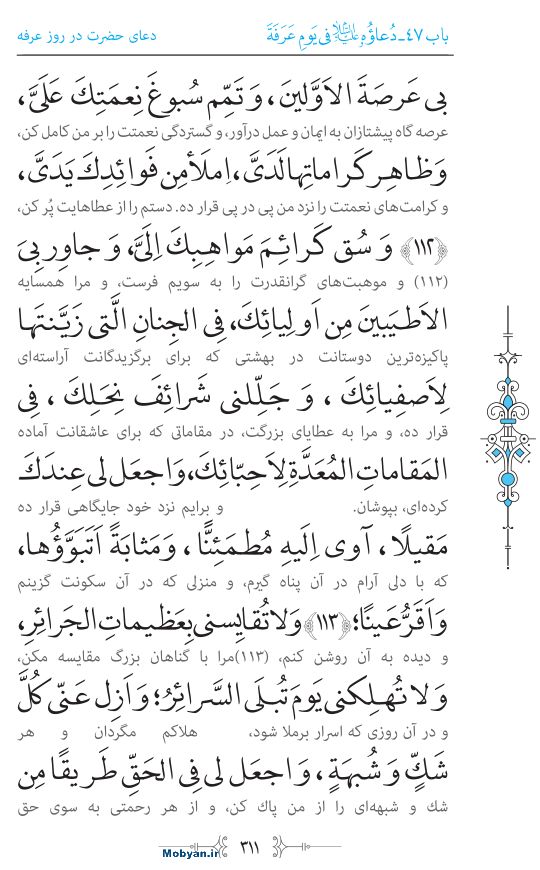 باب ۴۷ـ دُعاؤُهُ عليه‌السلام فى يَومِ عَرَفَةَ
دعاى حضرت در روز عرفه
بى عَرصَةَ الاَوَّلينَ، وَ تَمِّم سُبوغَ نِعمَتِكَ عَلَىَّ،
عرصه گاه پيشتازان به ايمان و عمل درآور، و گستردگى نعمتت را بر من كامل كن،
وَ ظاهِر كَراماتِها لَدَىَّ، اِملَأ مِن فَوائِدِكَ يَدَىَّ،
و كرامت‌هاى نعمتت را نزد من پى در پى قرار ده. دستم را از عطاهايت پُر كن،
﴿۱۱۲﴾ وَ سُق كَرائِمَ مَواهِبِكَ اِلَىَّ، وَ جاوِر بِىَ
(۱۱۲) و موهبت‌هاى گرانقدرت را به سويم فرست، و مرا همسايه
الاَطيَبينَ مِن اَولِيائِكَ، فِى الجِنانِ الَّتى زَيَّنتَها
پاكيزه‌ترين دوستانت در بهشتى كه براى برگزيدگانت آراسته‌اى
لِاَصفِيائِكَ ، وَ جَلِّلنى شَرائِفَ نِحَلِكَ ، فِى
قرار ده، و مرا به عطاياى بزرگت، در مقاماتى كه براى عاشقانت آماده
المَقاماتِ المُعَدَّةِ لِاَحِبّائِكَ، وَ اجعَل لى عِندَكَ
كرده‌اى، بپوشان. و برايم نزد خود جايگاهى قرار ده
مَقيلًا ، آوى اِلَيهِ مُطمَئِنًّا ، وَ مَثابَةً اَتَبَوَّؤُها،
كه با دلى آرام در آن پناه گيرم، و منزلى كه در آن سكونت گزينم
وَ اَقَرُّ عَينًا؛ ﴿۱۱۳﴾ وَ لا تُقايِسنى بِعَظيماتِ الجَرائِرِ،
و ديده به آن روشن كنم، (۱۱۳) مرا با گناهان بزرگ مقايسه مكن،
وَ لا تُهلِكنى يَومَ تُبلَى السَّرائِرُ؛ وَ اَزِل عَنّى كُلَّ
و در آن روزى كه اسرار برملا شود، هلاكم مگردان و هر
شَكٍّ وَ شُبهَةٍ ، وَ اجعَل لى فِى الحَقِّ طَريقًا مِن
شك و شبهه‌اى را از من پاك كن، و از هر رحمتى به سوى حق
۳۱۱
Mobyan.ir